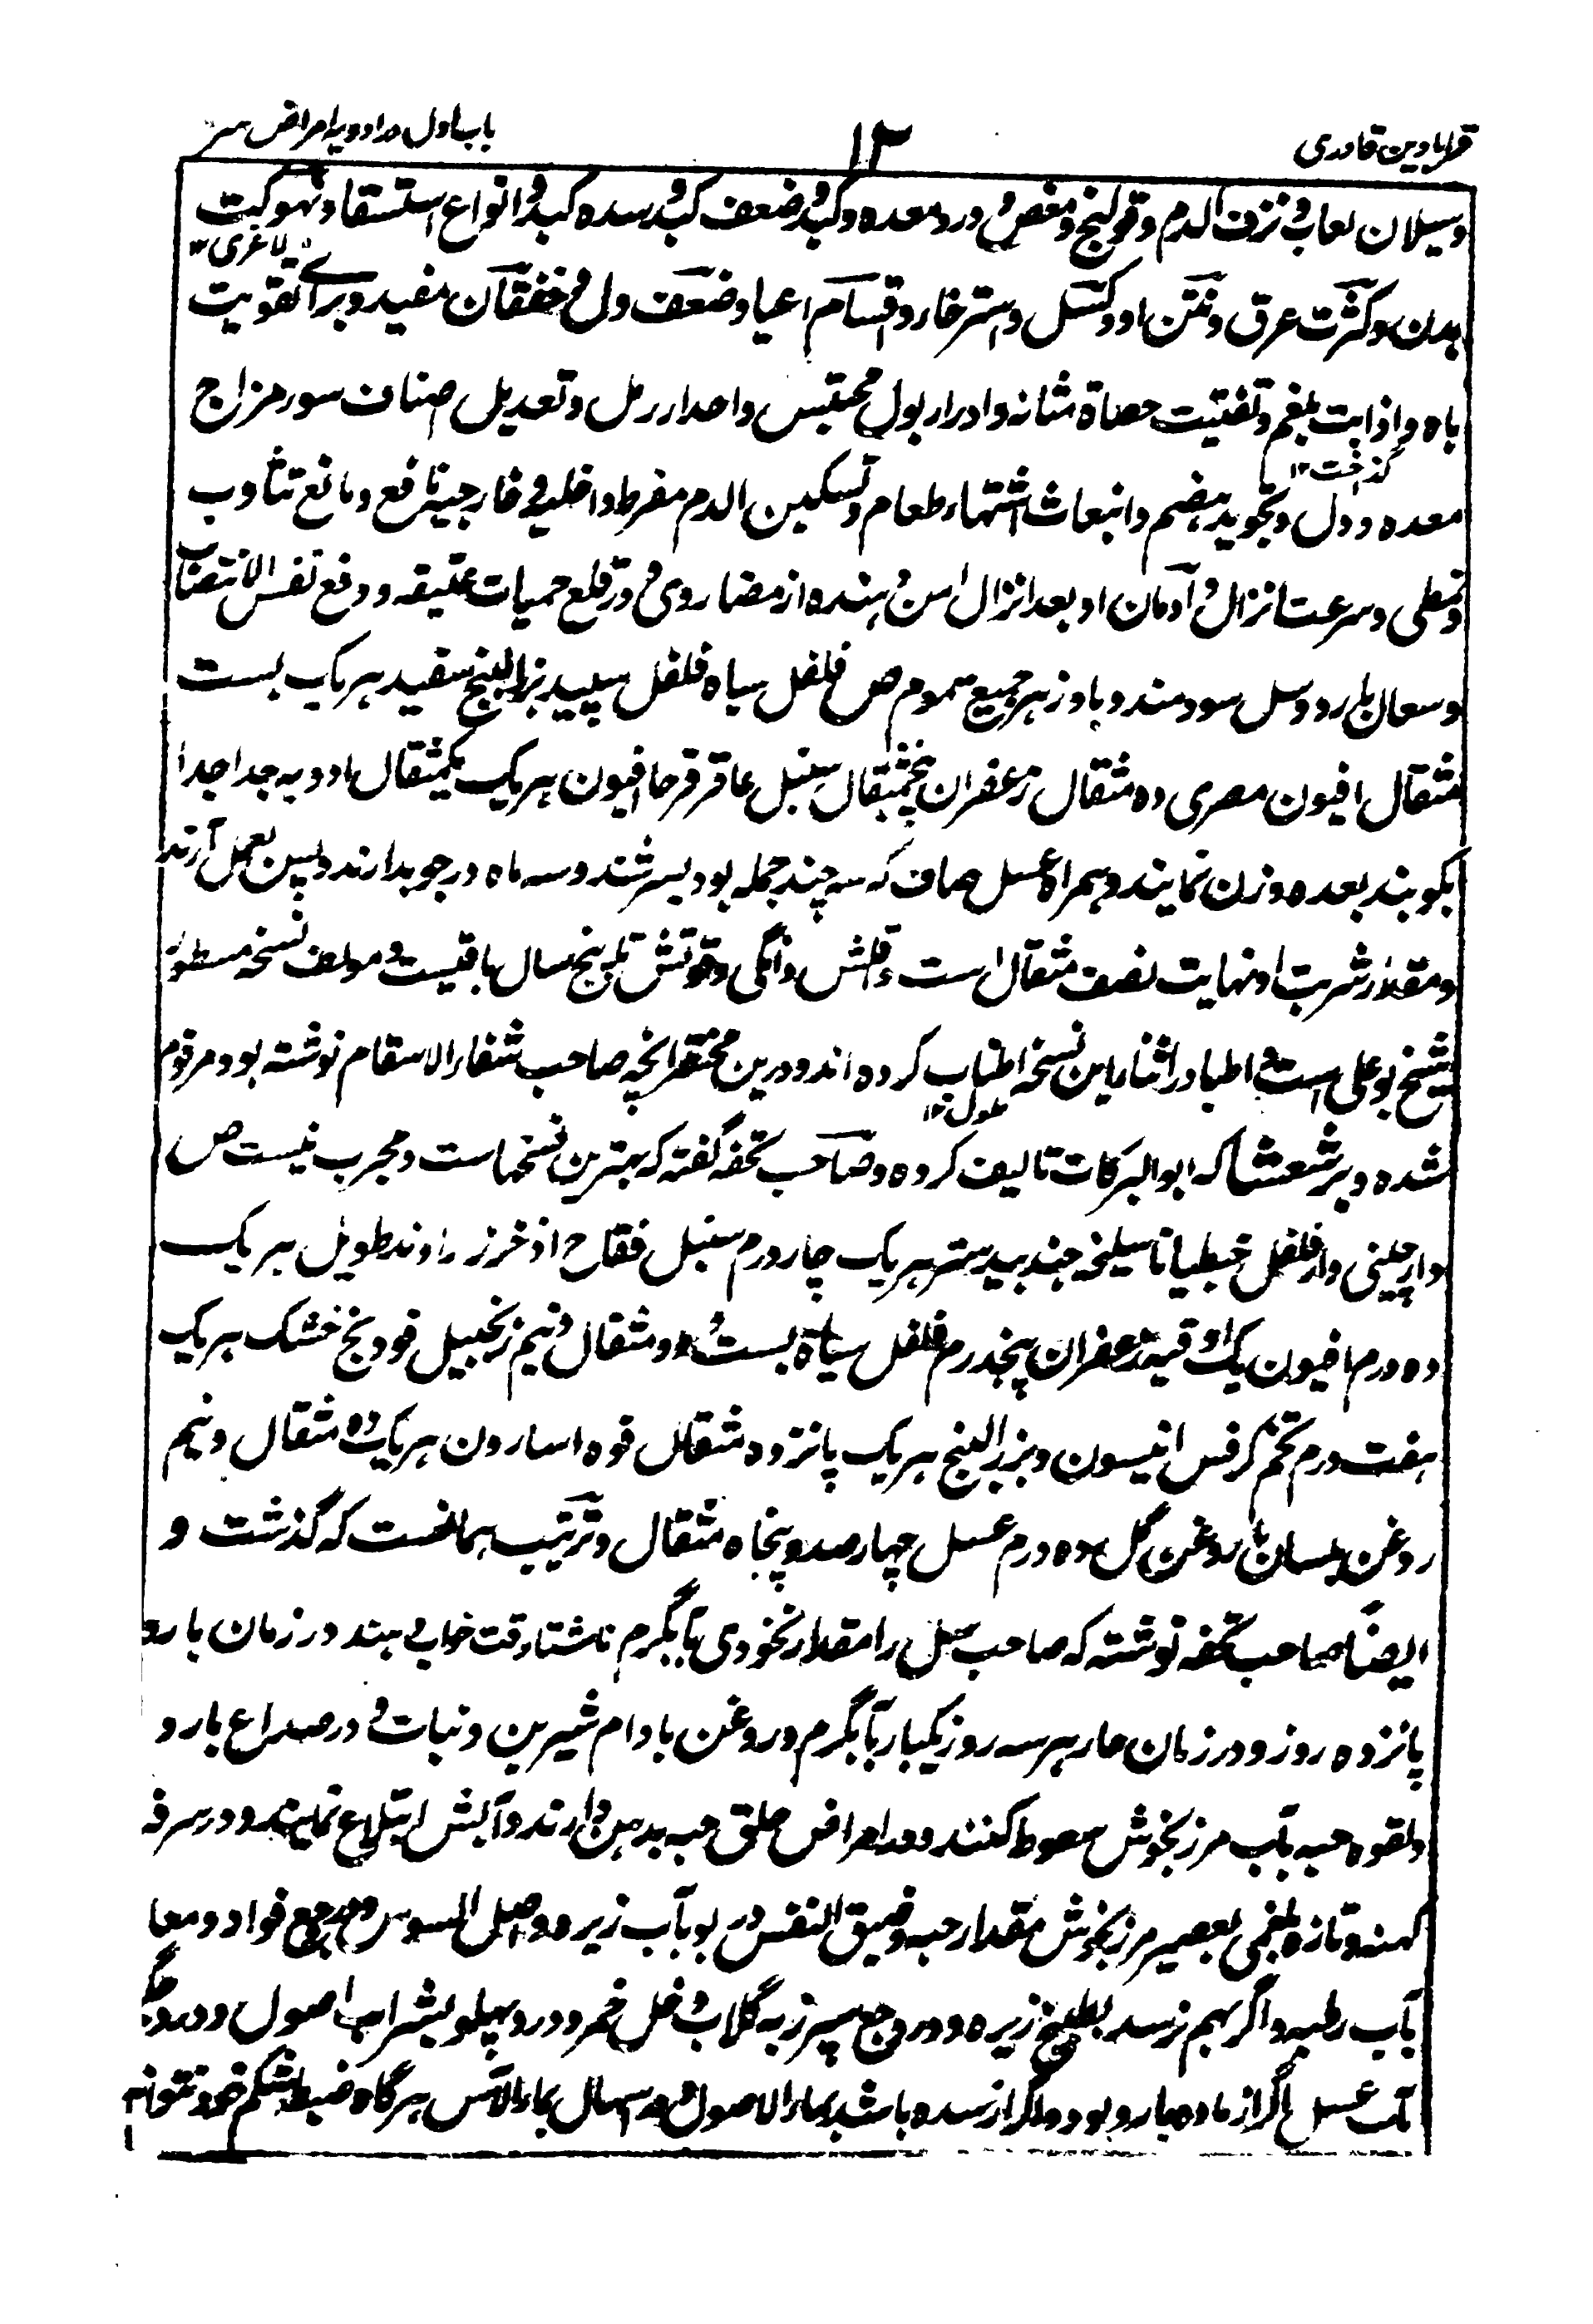 قرابادین قادری
۱۳
باب اول در ادویه امراض سر
وسیلان لعاب و نزف الدم و قولنج و مغص و درد معده و کبد و ضعف کبد و سده کبد و انواع استسقا و نهوکت
لاغری ۱۲
بدن و کثرت عرق و نتن او و کسل و استرخا و اقسام اعیا و ضعف دل و خفقان مفید و برای تقویت
باه و اذابت بلغم و تفتیت حصاة مثانه و ادرار بول محتبس و احدار رمل و تعدیل اصناف سوء مزاج
گذشت ۱۲
معده و دل و تجوید هضم و انبعاث اشتهاء طعام و تسکین الدم مفرط داخلی و خارجی نافع و مانع تثاوب
و تمطی و سرعت انزال و آدمان او بعد انزال امن دهنده از مضار وی و در قلع حمیات عتیقه و دفع نفس الانتصاب
و سعال بارد و سل سودمند و پادزهر جمیع سموم ص فلفل سیاه فلفل سپید بزرالبنج سفید هر یک بست
مثقال افیون مصری ده مثقال زعفران پنجمثقال سنبل عاقرقرحا افیون هر یک یکمثقال ادویه جدا جدا
بکوبند بعده وزن نمایند و همراه عسل صاف که سه چند جمله بود بسرشند و سه ماه در جو بدارند و پس بعمل آرند
و مقدار شربت او نهایت نصف مثقال است و اقلش دانگی و قوتش تا پنج سال باقیست و مولف نسخه مسطور
شیخ بو علی است و اطبا در اثنای این نسخه اطناب کرده اند و درین مختصر آنچه صاحب شفاء الاسقام نوشته بود مرقوم
طول ۱۲
شده و برشعشا که ابوالبرکات تالیف کرده و صاحب تحفه گفته که بهترین نسخهاست و مجرب نیست ص
دارچینی دارفلفل جنطیانا سلیخه جندبیدستر هر یک چار درم سنبل فقاح اذخر زراوند طویل هر یک
ده درم افیون یک اوقیه زعفران پنجدرم فلفل سیاه بست و دو مثقال و نیم زنجبیل فودنج خشک هر یک
هفت درم تخم کرفس انیسون و بزرالبنج هر یک پانزده مثقال فوه اسارون هر یک ده مثقال و نیم
روغن بلسان یا روغن گل ده درم عسل چهارصد و پنجاه مثقال و ترتیب همانست که گذشت و
ایضاً صاحب تحفه نوشته که صاحب سل را مقدار نخودی بآبگرم ناشتا وقت خواب دهند در زمان بارد
پانزده روز و در زمان حار هر سه روز یکبار بآبگرم و روغن بادام شیرین و نبات و در صداع بارد
و لقوه حبه بآب مرزنجوش سعوط کنند و در امراض حلق حبه بدهن دارند و آبش ابتلاع نمایند و در سرفه
کهنه و تازه بلغمی بعصیر مرزنجوش مقدار حبه و ضیق النفس در بو بآب زیره و اصل السوس و در وجع فواد و معا
بآب رطبه و اگر بهم نرسد بطبیخ زیره و در وجع سپرز به گلاب و خل خمر و درد پهلو بشراب اصول و در وجع جگر
بآب عسل اگر از ماده بارد بود و اگر از سده باشد بماء الاصول و در اسهال بماء الآس هرگاه ضبط شکم خود نتواند